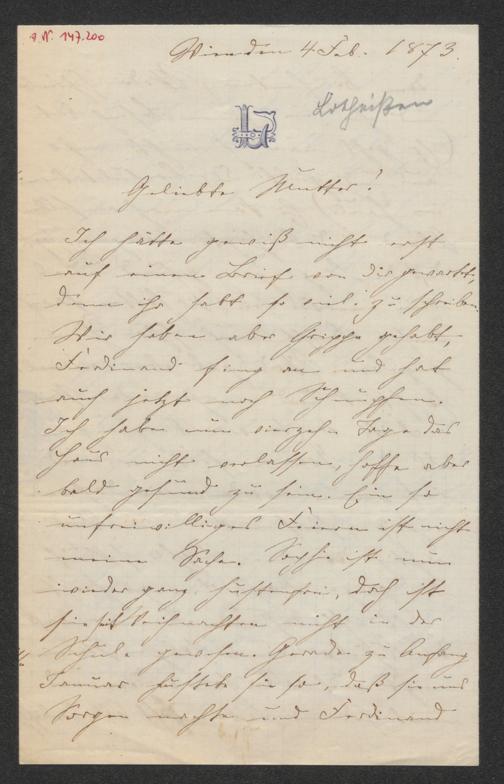 I. N. 147.200
Wien den 4 Feb. 1873.
Lotheißen
Geliebte Mutter!
Ich hätte gewiß nicht erst
auf einen Brief von dir gewartet,
denn ihr habt so viel zu schreiben.
Wir haben aber Grippe gehabt,
Ferdinand fing an und hat
auch jetzt noch Schnupfen.
Ich habe nun vierzehn Tage das
Haus nicht verlassen, hoffe aber
bald gesund zu sein. Ein so
unfreiwilliges Feiern ist nicht
meine Sache. Sophie ist nun
wieder ganz hustenfrei, doch ist
sie seit Weihnachten nicht in der
Schule gewesen. Gerade zu Anfang
Januar hustete sie so, daß sie uns
Sorgen machte und Ferdinand